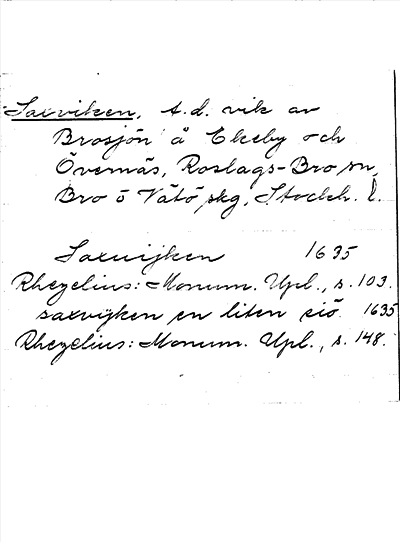 Saxviken, f.d. vik av
Brosjön å Ekeby och
Övernäs, Roslags-Bro sn,
Bro ö Vätö skg, Stockh. l.
Saxwijken 1635
Rhezelius: Monum. Upl., s. 103.
saxvijken en liten siö 1635
Rhezelius: Monum. Upl., s. 148.